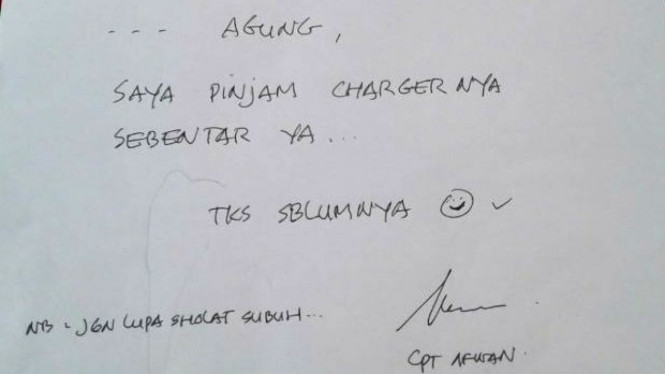 --- AGUNG,
SAYA PINJAM CHARGERNYA
SEBENTAR YA...
TKS SBLUMNYA
NB : JGN LUPA SHOLAT SUBUH...
CPT AFWAN.